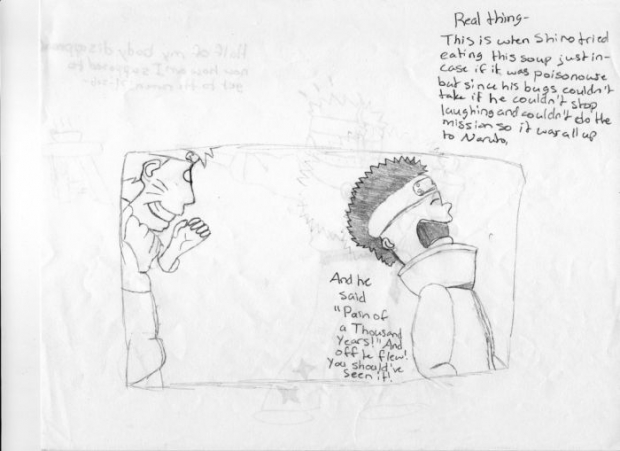 Real thing-
This is when Shino tried
eating this soup just in-
case if it was poisonouse
but since his bugs couldn't
take it he couldn't stop
laughing and couldn't do the
mission so it was all up
to Naruto.
And he
said
"Pain of
a Thousand
Years!" And
off he flew!
you should've
seen it!
Half of my body disappeared
now how am I supposed to
get to the moon,